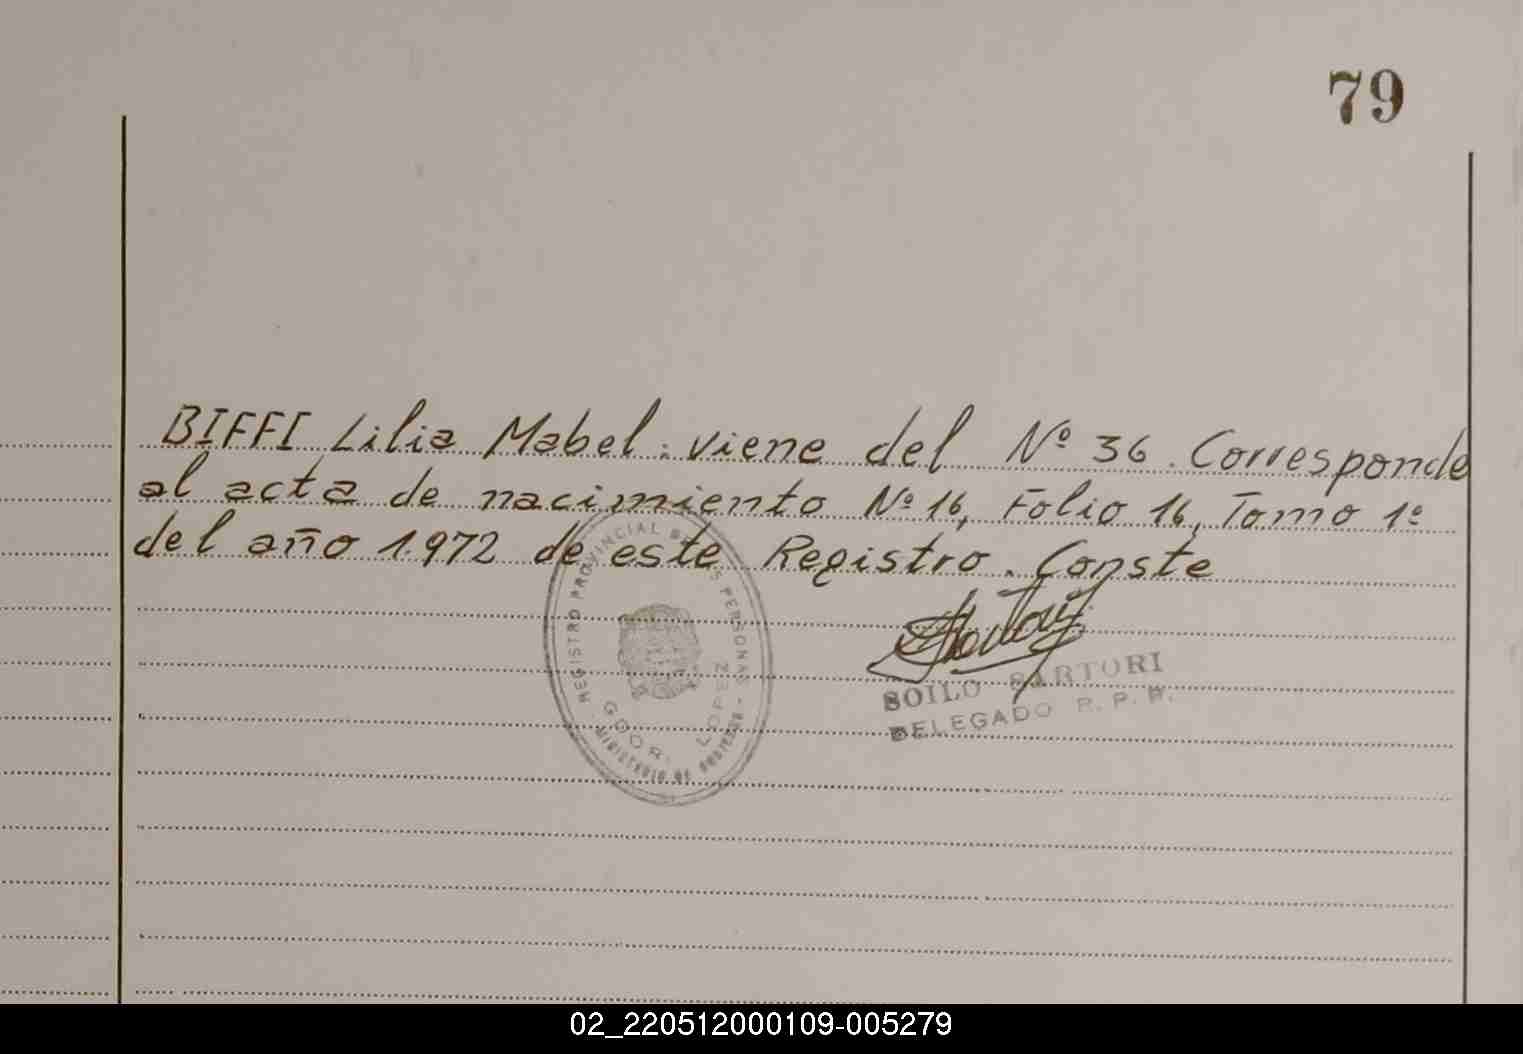 79
BIFFI Lilia Mabel: viene del Nº 36. Corresponde
al acta de nacimiento Nº 16, Folio 16, Tomo 1º
del año 1.972 de este Registro. Conste
REGISTRO PROVINCIAL DE LAS PERSONAS -
GDOR. LOPEZ
MINISTERIO DE GOBIERNO
SOILO SARTORI
DELEGADO R. P. P.
02_220512000109-005279